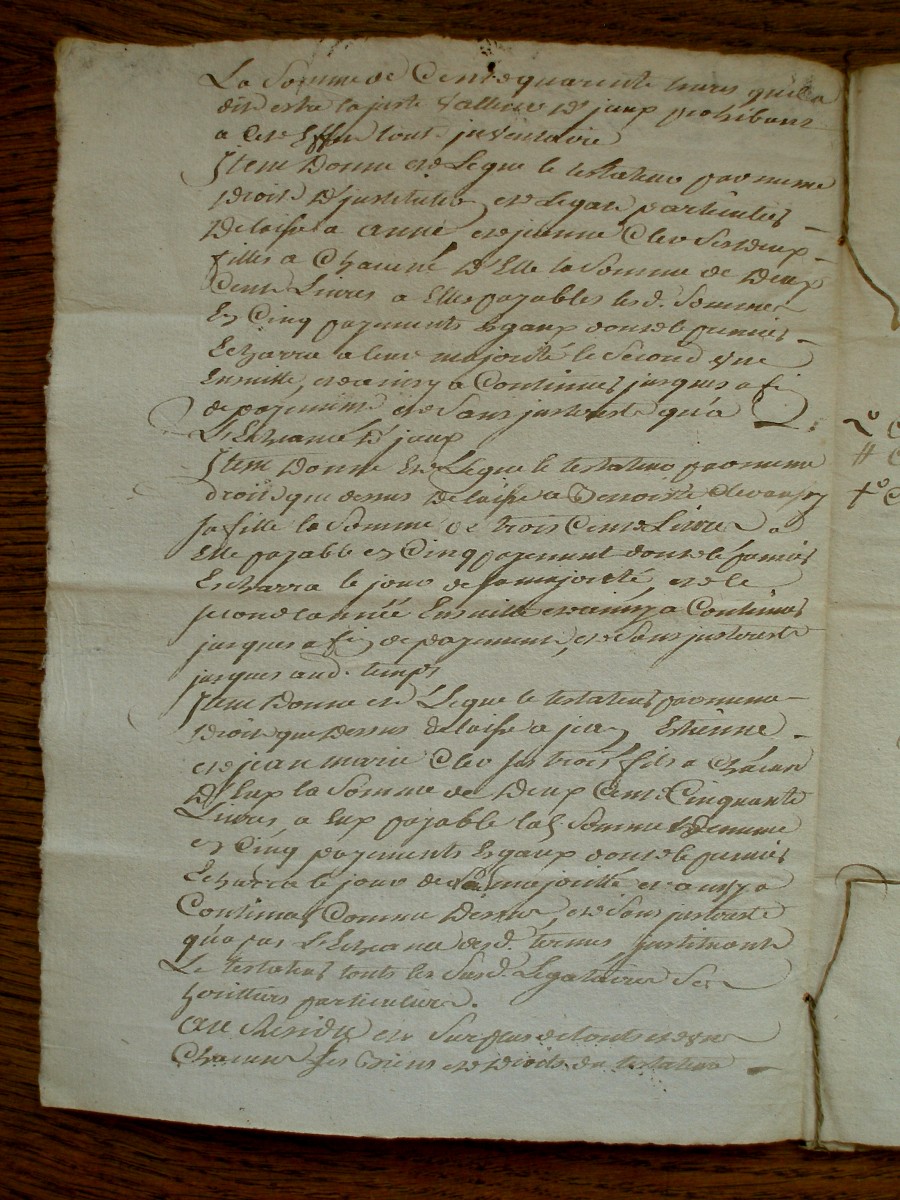 La Somme de Cent quarente livres quil a
dit estre la juste Valleur d'jceux prohibant
a cet Effet tout jnventaire
Jtem Donne et Legue le testateur par meme
Droit d'justitution et Legat particulier
Delaisse a anne et jeanne Cler Ses deux
filles a Chacune d'Elle la Somme de Deux
Cent Livres a Elle payables lesd. Sommes
En Cinq payements Egaux dont le premier
Echerra a leur majorité le Second une
Ensuitte, et ainsy a Continuer jusques a fin
de payement et Sans jnterest qu'a
L'Echeance d'jceux
Jtem Donne Et Legue le testateur par meme
droit que dessus Delaisse a Benoiste Cler aussy
Sa fille la Somme de trois Cent Livres a
Elle payable en Cinq payement dont le premier
Escherra le jour de sa majorité, et le
second année Ensuitte et ainsy a Continuer
jusques a fin de payement, et Sans jnterest
jusques aud. temps
Jtem Donne et Legue le testateur par meme
Droit que Dessus delaisse a jean, Estienne
et jean marie Cler Ses trois fils a Chacun
D'Eux la Somme de Deux Cent Cinquante
Livres, a Eux payable lad. Somme
en Cinq payements Egaux dont le premier
Echerra le jour de Sa majorité et ainsy a
Continuer Comme Dessus, et Sans jnterest
qu'apres L'Echeance desd. termes justituant
Le testateur touts les Susd. Legataires Ses
heritiers particuliers.
Au Residu et Surplus de touts et un
Chacuns Ses Biens et Droits du testateur